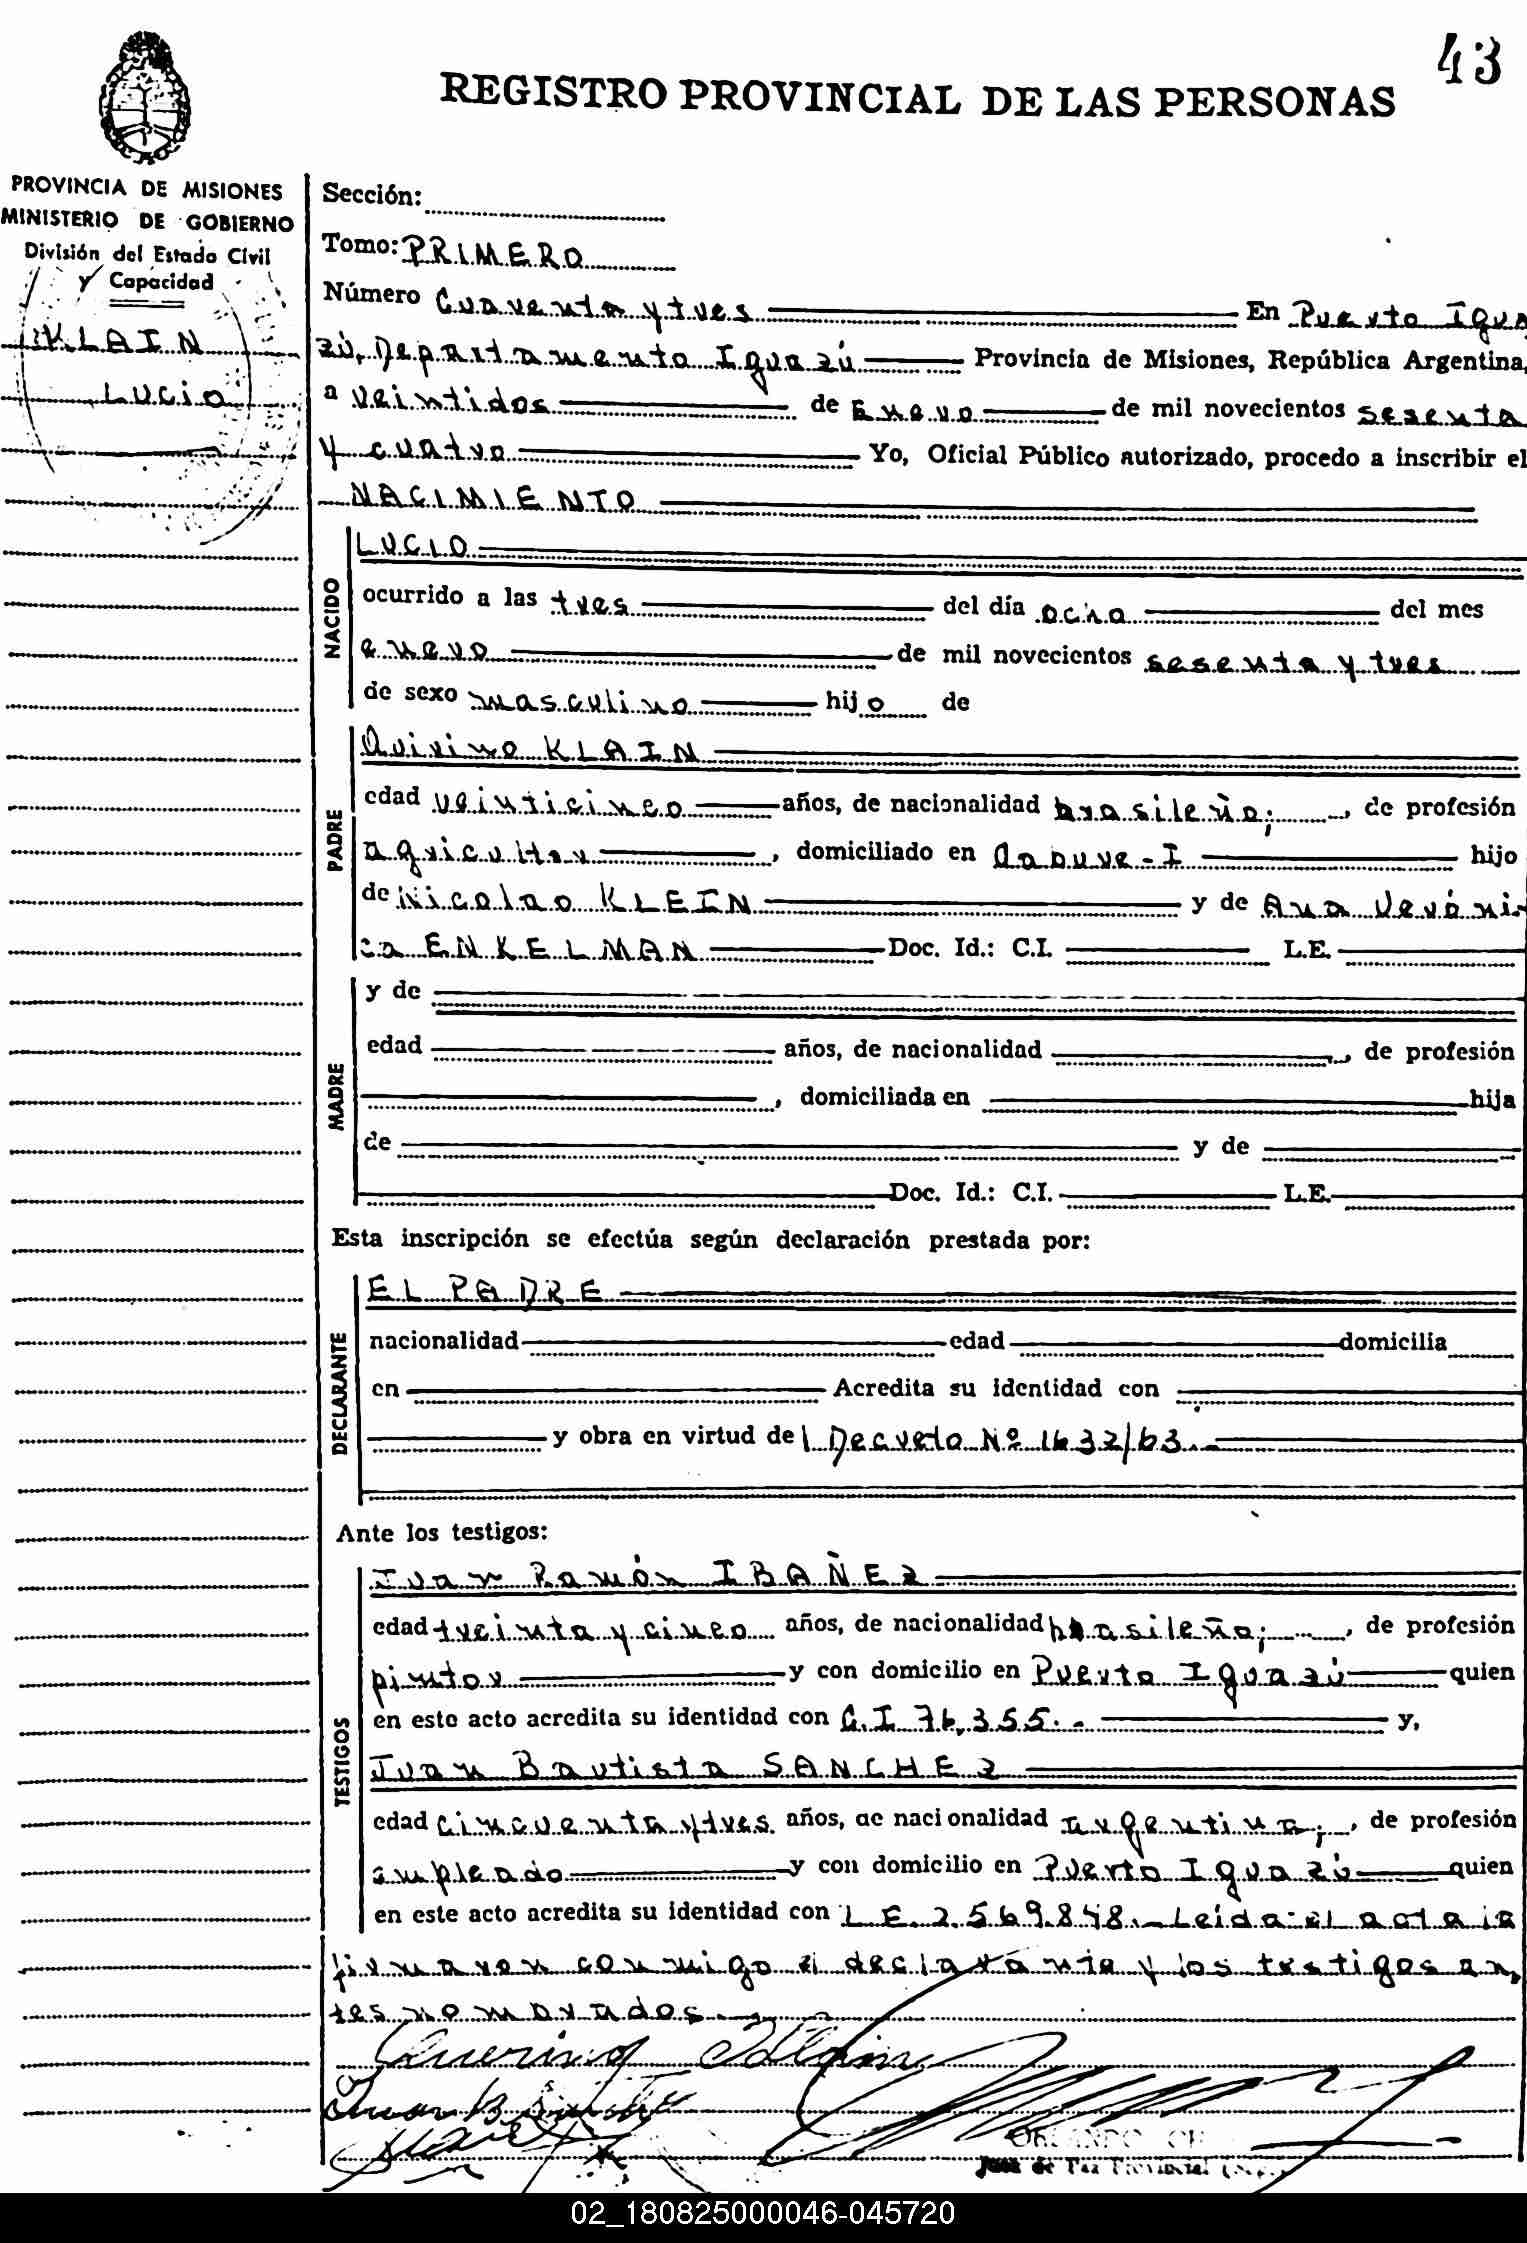 43
REGISTRO PROVINCIAL DE LAS PERSONAS
PROVINCIA DE MISIONES
MINISTERIO DE GOBIERNO
División del Estado Civil
y Capacidad
KLAIN
LUCIO
Sección:
Tomo: PRIMERO
Número Cuarenta y tres En Puerto Igua
zú, Departamento Iguazú Provincia de Misiones, República Argentina,
a veintidos de Enero de mil novecientos sesenta
y cuatro Yo, Oficial Público autorizado, procedo a inscribir el
NACIMIENTO
NACIDO
LUCIO
ocurrido a las tres del día ocho del mes
enero de mil novecientos sesenta y tres
de sexo masculino hijo de
PADRE
Quirino KLAIN
edad veinticinco años, de nacionalidad brasileña; , de profesión
agricultor , domiciliado en I hijo
de Nicolao KLEIN y de Ana Veróni-
ca ENKELMAN Doc. Id.: C.I. L.E.
MADRE
y de
edad años, de nacionalidad , de profesión
, domiciliada en hija
de y de
Doc. Id.: C.I. L.E.
Esta inscripción se efectúa según declaración prestada por:
DECLARANTE
EL PADRE
nacionalidad edad domicilia
en Acredita su identidad con
y obra en virtud del Decreto Nº 1632/63.-
Ante los testigos:
TESTIGOS
Juan Ramón IBAÑEZ
edad treinta y cinco años, de nacionalidad brasileña; , de profesión
pintor y con domicilio en Puerto Iguazú quien
en este acto acredita su identidad con C.I 76.355.- y,
Juan Bautista SANCHEZ
edad cincuenta y tres años, de nacionalidad argentina; , de profesión
empleado y con domicilio en Puerto Iguazú quien
en este acto acredita su identidad con L E. 2.569.848.- Leída el acta la
firmaron conmigo el declarante y los testigos an-
tes nomorados.-
Juan B
Juez de Paz Provincial
02_180825000046-045720